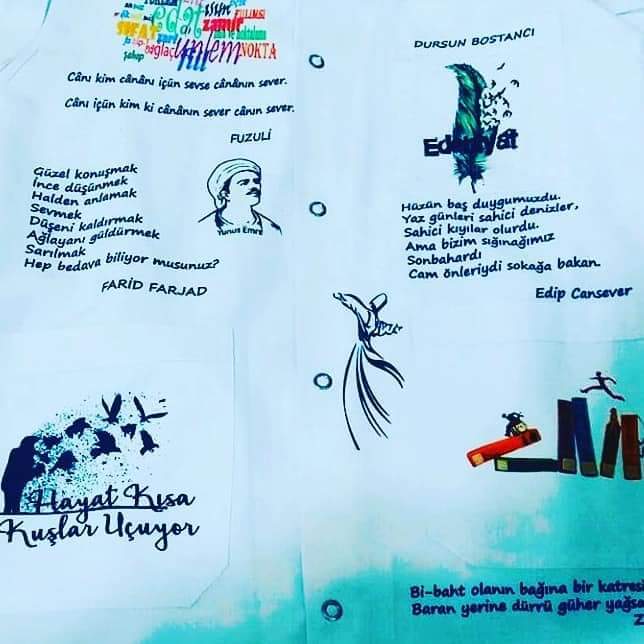 ZULİMSİ
SIFAT
zarf
edat
zamir
bağlaç
ünlem
NOKTA
şahıp
Cânı kim cânânı içün sevse cânânın sever.
Cânı içün kim ki cânânın sever cânın sever.
FUZULİ
Güzel konuşmak
İnce düşünmek
Halden anlamak
Sevmek
Düşeni kaldırmak
Ağlayanı güldürmek
Sarılmak
Hep bedava biliyor musunuz?
FARİD FARJAD
Yunus Emre
Hayat Kısa
Kuşlar Uçuyor
DURSUN BOSTANCI
Edebiyat
Hüzün baş duygumuzdu.
Yaz günleri sahici denizler,
Sahici kıyılar olurdu.
Ama bizim sığınağımız
Sonbahardı
Cam önleriydi sokağa bakan.
Edip Cansever
Bi-baht olanın bağına bir katresi
Baran yerine dürrü güher yağsa